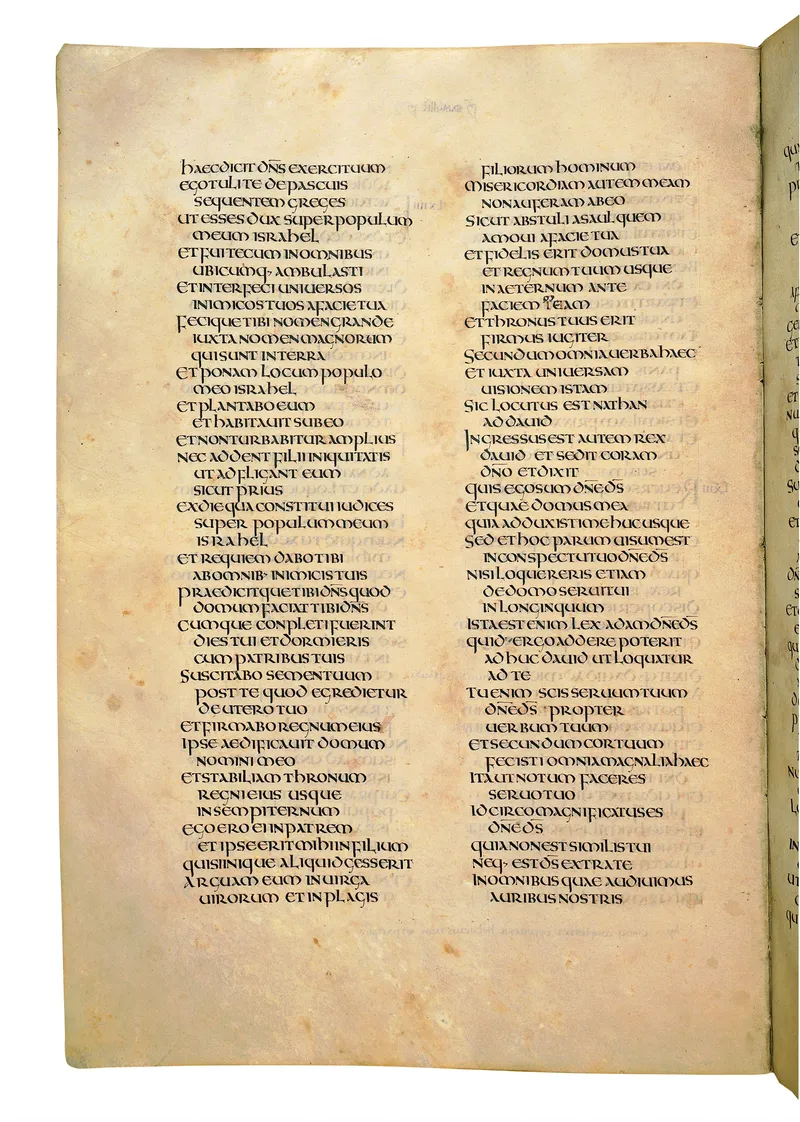 haecdicit dn̄s exercituum
ego tuli te de pascuis
sequentem greges
ut esses dux super populum
meum israhel
et fui tecum in omnibus
ubicumq· ambulasti
et interfeci uniuersos
inimicos tuos a facie tua
fecique tibi nomen grande
iuxta nomen magnorum
qui sunt in terra
et ponam locum populo
meo israhel
et plantabo eum
et habitauit sub eo
et non turbabitur amplius
nec addent filii iniquitatis
ut adfligant eum
sicut prius
ex die qua constitui iudices
super populum meum
israhel
et requiem dabo tibi
ab omnib· inimicis tuis
praedicitque tibi dn̄s quod
domum faciat tibi dn̄s
cumque conpleti fuerint
dies tui et dormieris
cum patribus tuis
suscitabo semen tuum
post te quod egredietur
de utero tuo
et firmabo regnum eius
ipse aedificauit domum
nomini meo
et stabiliam thronum
regni eius usque
in sempiternum
ego ero ei in patrem
et ipse erit mihi in filium
qui si inique aliquid gesserit
arguam eum in uirga
uirorum et in plagis
filiorum hominum
misericordiam autem meam
non auferam ab eo
sicut abstuli a saul quem
amoui a facie tua
et fidelis erit domus tua
et regnum tuum usque
in aeternum ante
faciem eam
et thronus tuus erit
firmus iugiter
secundum omnia uerba haec
et iuxta uniuersam
uisionem istam
sic locutus est nathan
ad dauid
ingressus est autem rex
dauid et sedit coram
dn̄o et dixit
quis ego sum dn̄e ds̄
et quae domus mea
quia adduxisti me hucusque
sed et hoc parum uisum est
in conspectu tuo dn̄e ds̄
nisi loquereris etiam
de domo serui tui
in longinquum
ista est enim lex adam dn̄e ds̄
quid ergo addere poterit
adhuc dauid ut loquatur
ad te
tu enim scis seruum tuum
dn̄e ds̄ propter
uerbum tuum
et secundum cor tuum
fecisti omnia magnalia haec
ita ut notum faceres
seruo tuo
idcirco magnificatus es
dn̄e ds̄
quia non est similis tui
neq· est ds̄ extra te
in omnibus quae audiuimus
auribus nostris